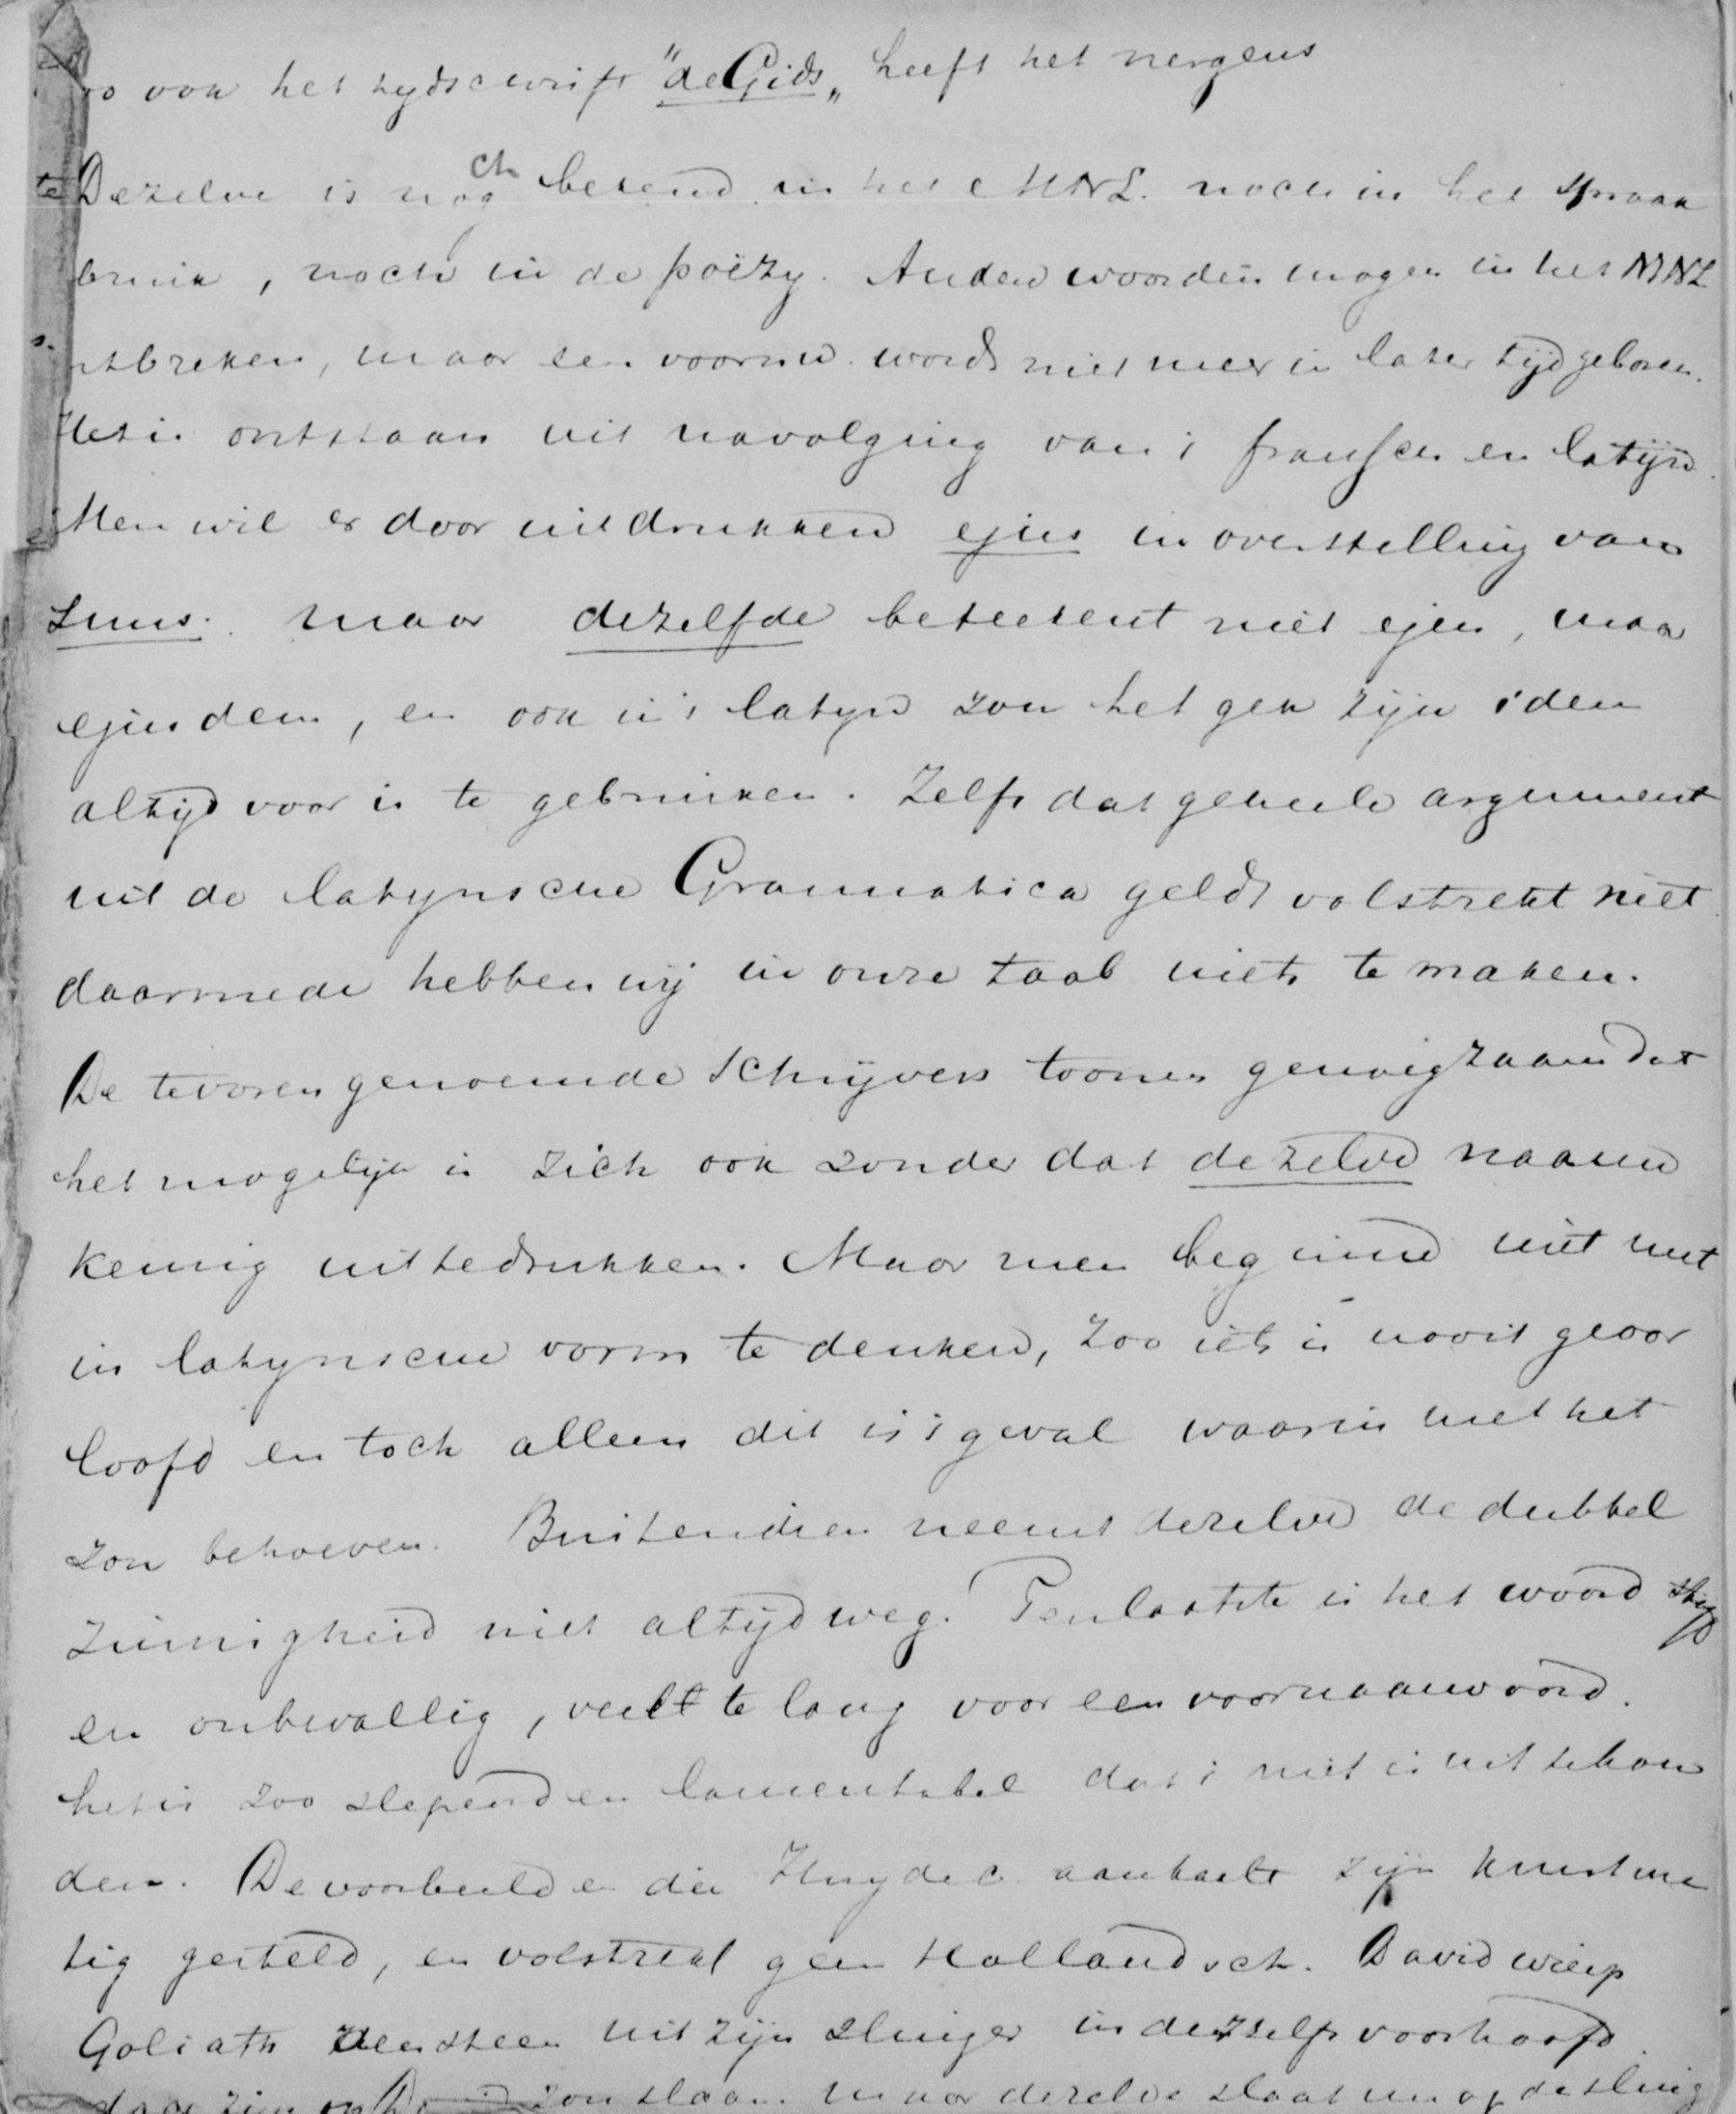 oo ook het tydschrift "de Gids„ heeft het nergens
Dezelve is noch bekend in het MNL. noch in het spraak
bruik, noch in de poëzy. Andere woorden mogen in het MNL
ntbreken, maar een voornw. wordt niet meer in later tijd geboren.
Het is ontstaan uit navolging van 't fransch en latijn.
Men wil er door uitdrukken ejus in overstelling van
suus. maar dezelfde beteekent niet ejus, maar
ejusdem, en ook in 't latyn zou het gek zijn idem
altijd voor is te gebruiken. Zelfs dat geheele argument
uit de latynsche Grammatica geldt volstrekt niet
daarmede hebben wij in onze taal niets te maken.
De tevoren genoemde schrijvers toonen genoegzaam dat
het mogelijk is zich ook zonder dat dezelve naauw
keurig uittedrukken. Maar men beginne niet met
in latynsche vorm te denken, zoo iets is nooit geoor
loofd en toch alleen dit is 't geval waarin men het
zou behoeven. Buitendien neemt dezelve de dubbel
zinnigheid niet altijd weg. Ten laatste is het woord stijf
en onbevallig, veel te lang voor een voornaamwoord.
het is zoo slepend en lamentabel dat 't niet is uit te hou
den. De voorbeelden die Huydec. aanhaalt zijn kunstma
tig gesteld, en volstrekt geen Hollandsch. David wierp
Goliath den steen uit zijn slinger in deszelfs voorhoofd.
zou slaan. maar dezelve slaat nu op de sling